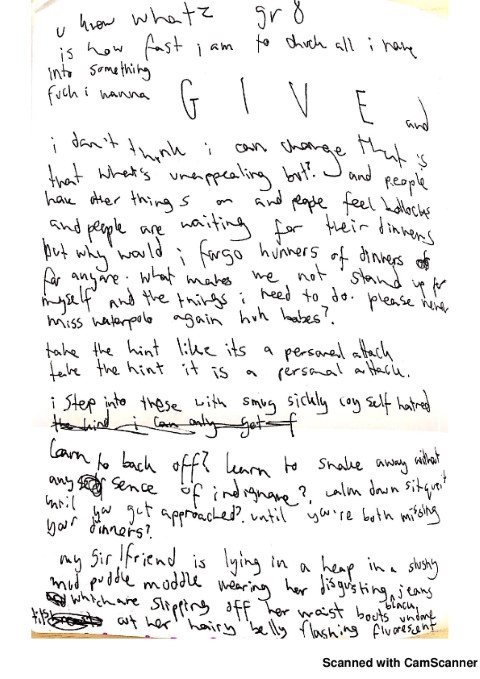 u know what? gr8
is how fast i am to chuck all i have
into something
fuck i wanna G I V E and
i don't think i can change that is
that what's unappealing bout? and people
have other things on and people feel bollocks
and people are waiting for their dinners
but why would i forgo hunners of dinners
for anyone. what makes me not stand up for
myself and the things i need to do. please never
miss waterpolo again huh babes?
take the hint like its a personal attack
take the hint it is a personal attack.
i step into these with smug sickly coy self hatred
learn to back off? learn to snake away without
any sence of indignance?. calm down sit quiet
until you get approached? until you're both missing
your dinners?
my girlfriend is lying in a heap in a slushy
mud puddle moddle wearing her disgusting jeans
which are slipping off her waist black boots undone
at her hairy belly flashing fluorescent.
Scanned with CamScanner